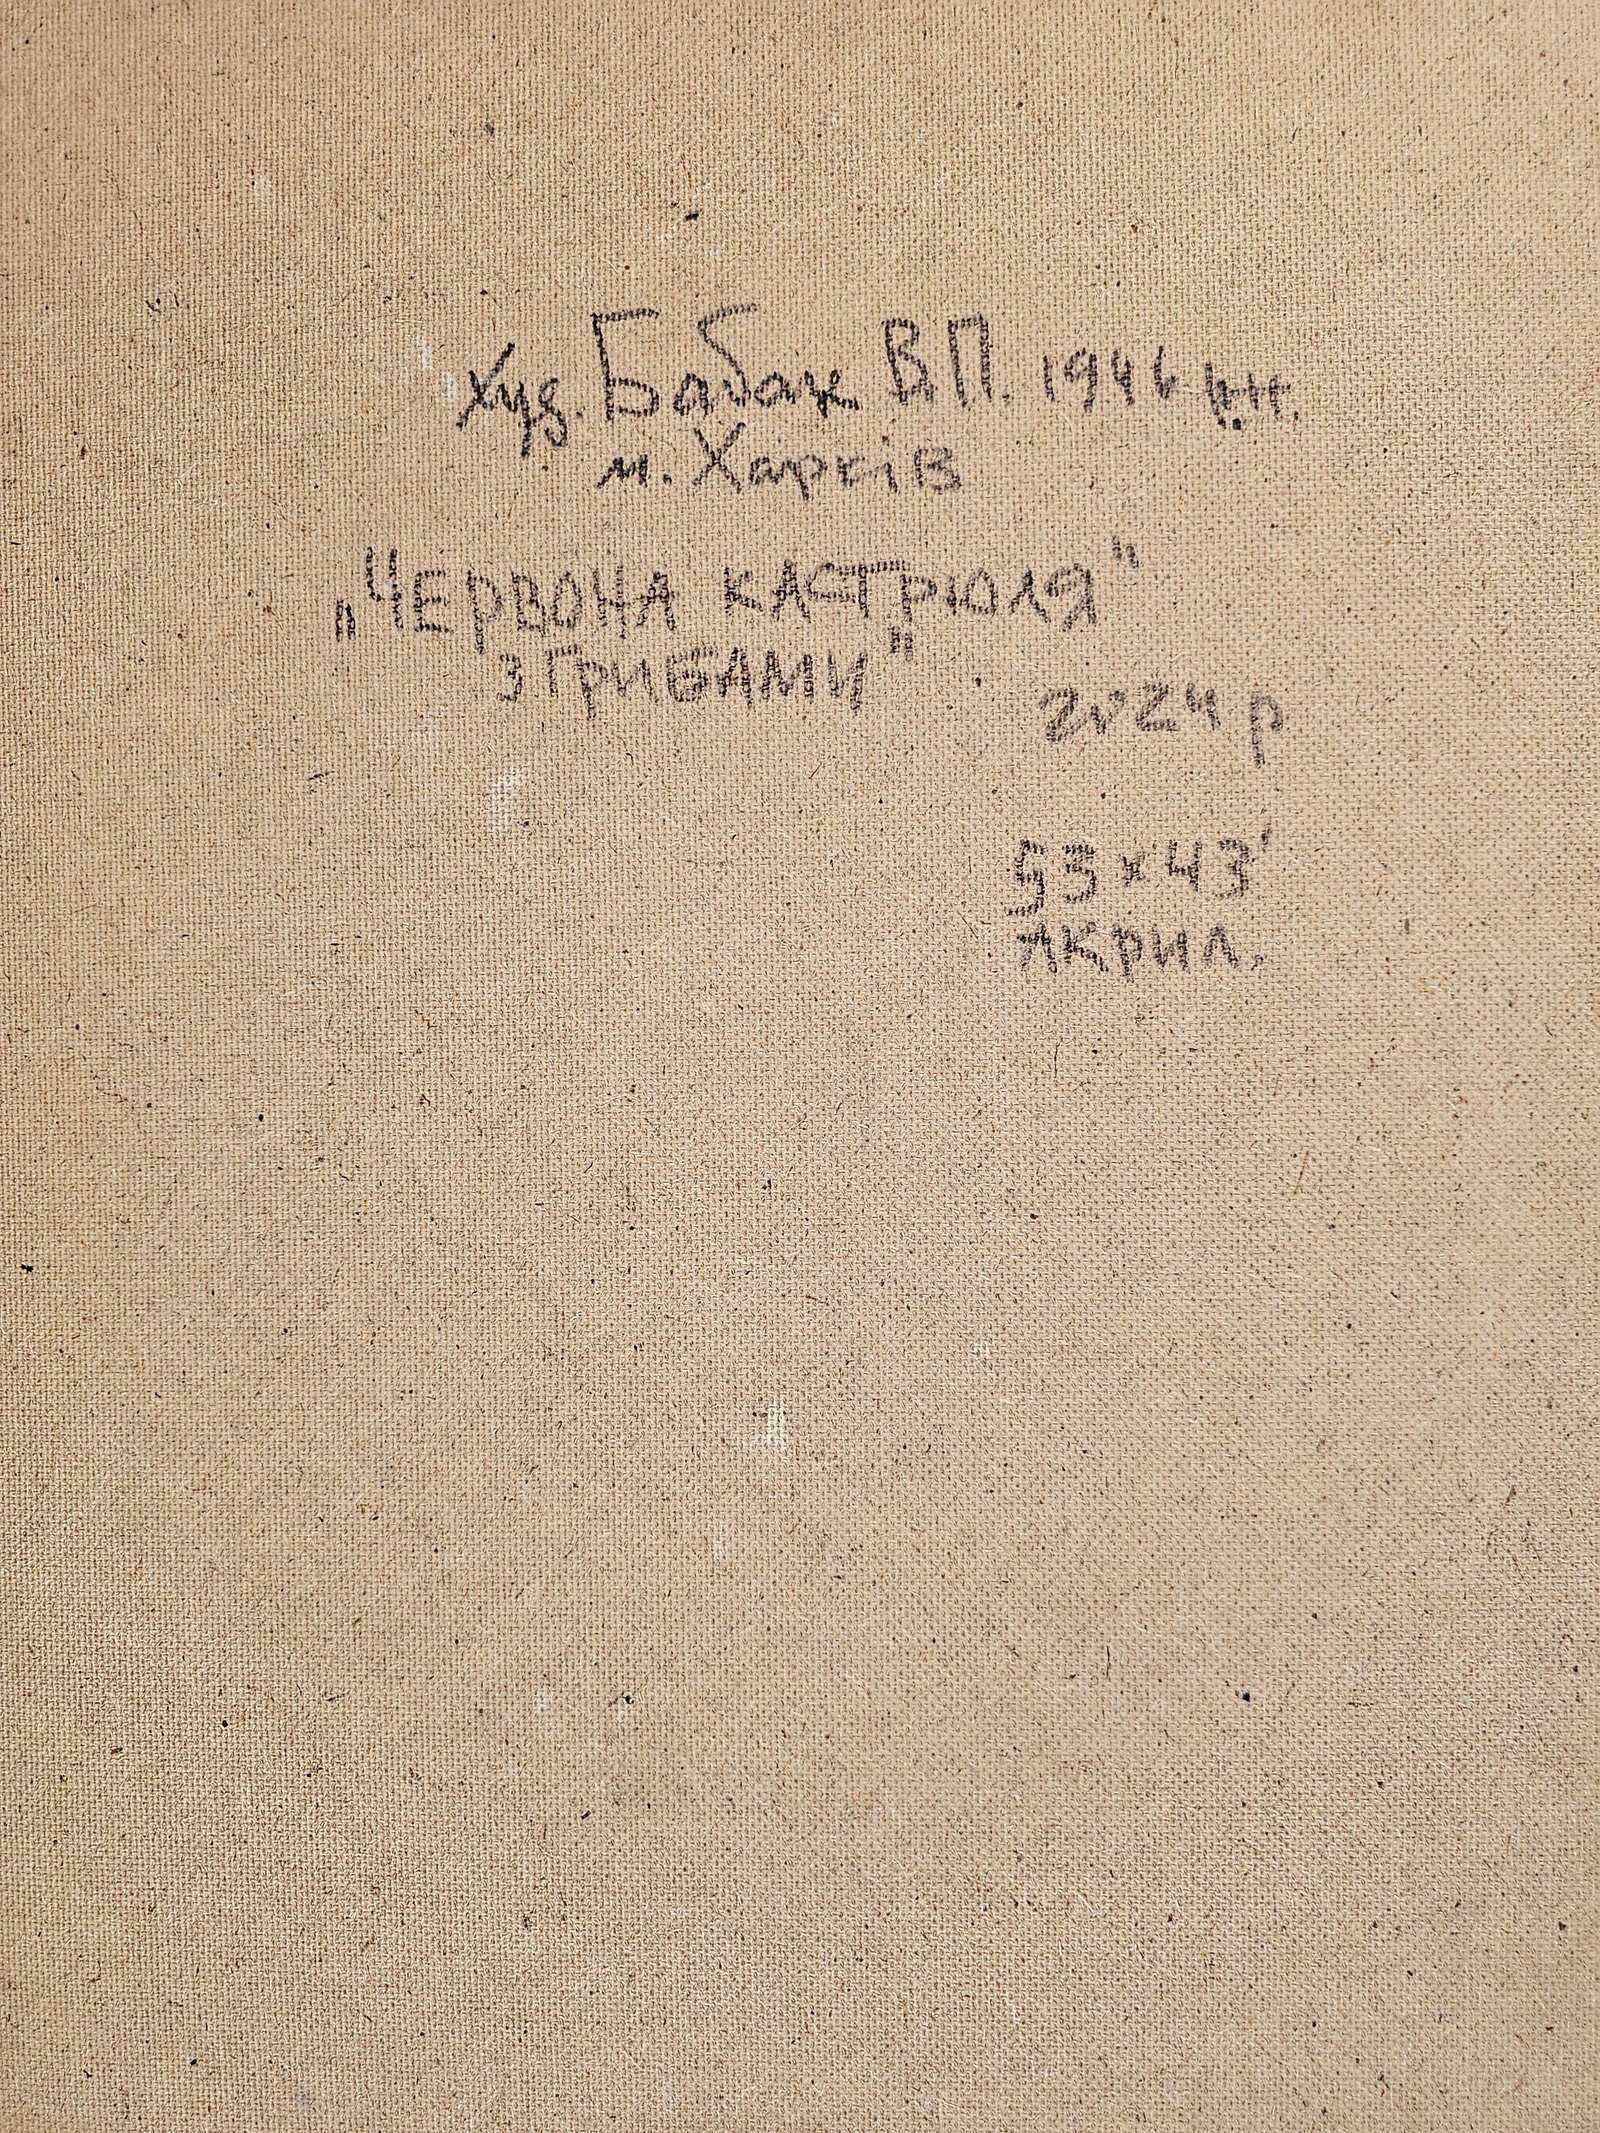 худ. Бабак В.П. 1946 н.н.
м. Харків
„ЧЕРВОНА КАСТРЮЛЯ"
з ГРИБАМИ"
2024 р
53 x 43
АКРИЛ.